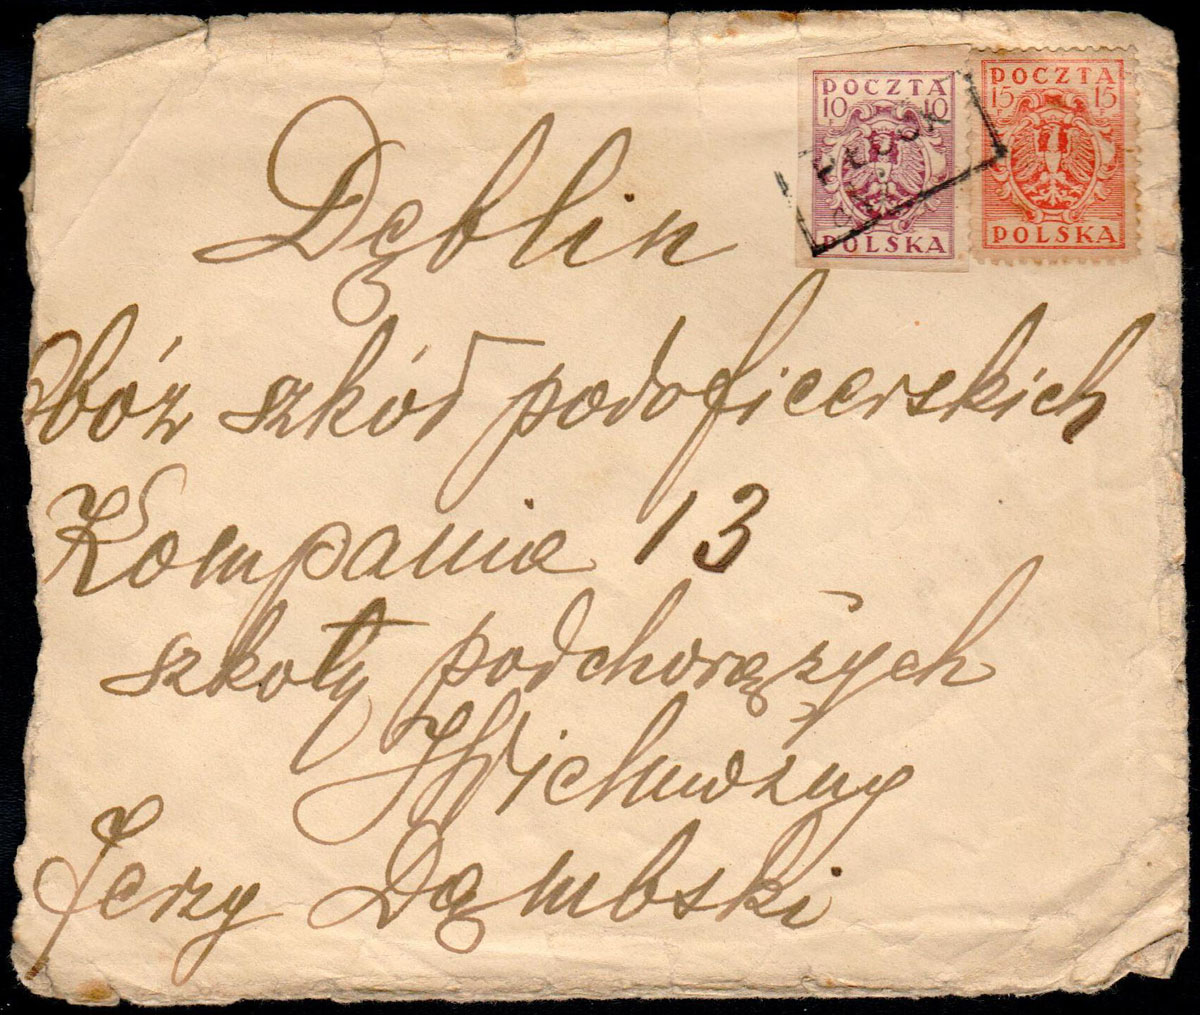 POCZTA
10 10
F F
POLSKA
POCZTA
15 15
F F
POLSKA
PŁOCK
Dęblin
Obóz szkół podoficerskich
Kompania 13
szkoły podchorążych
Jerzy Dąmbski